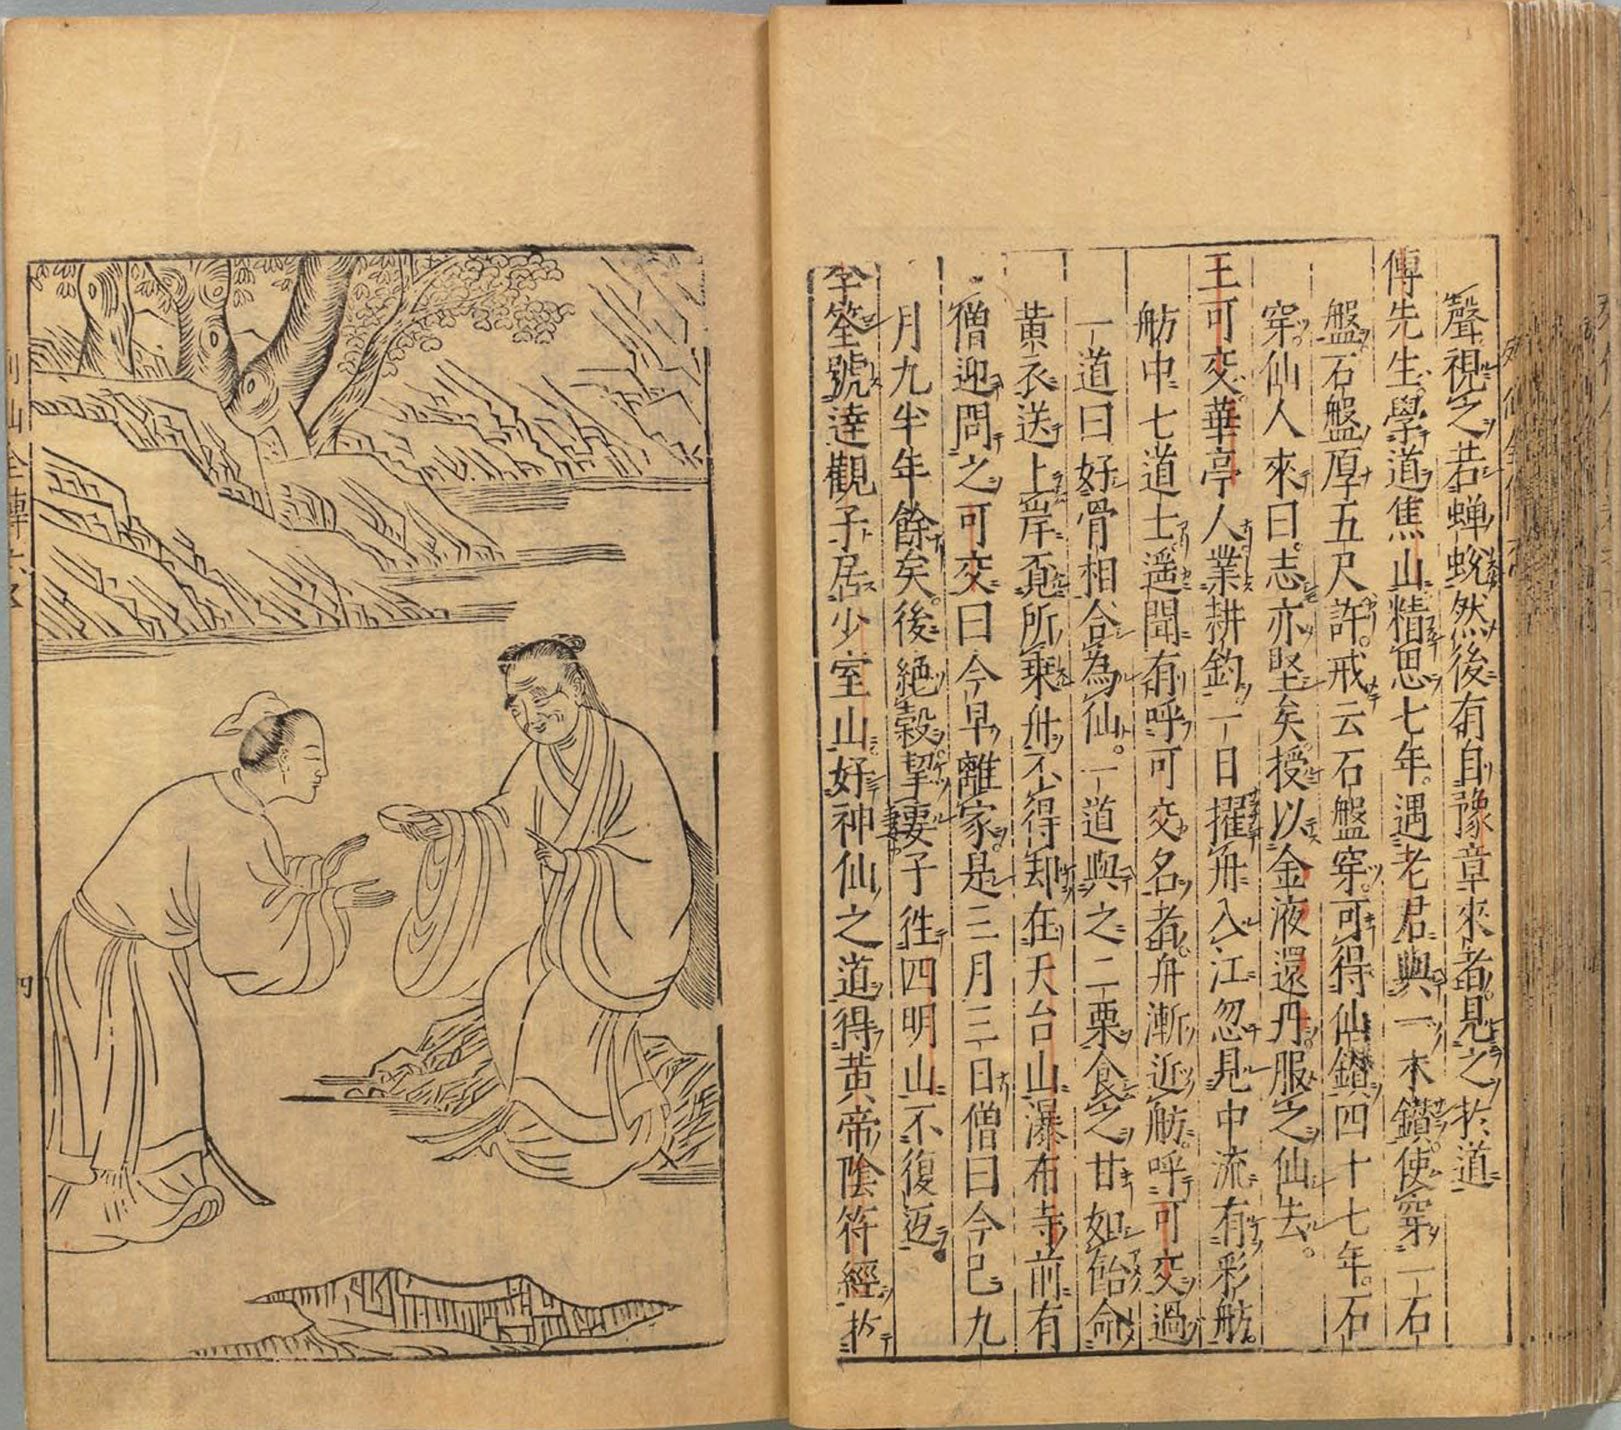 聲視之若蝉蛻然後有自豫章來者見之於道
傅先生學道焦山精思七年遇老君與一木鑚使穿一石
盤石盤厚五尺許戒云石盤穿可得仙鑚四十七年石
穿仙人來曰志亦堅矣授以金液還丹服之仙去
王可交華亭人業耕釣一日擢舟入江忽見中流有彩舫
舫中七道士遥聞有呼可交名者舟漸近舫呼可交過
一道曰好骨相合為仙一道與之二栗食之甘如飴命
黄衣送上岸覓所乘舟不得却在天台山瀑布寺前有
僧迎問之可交曰今早離家是三月三日僧曰今已九
月九半年餘矣後絕穀挈妻子徃四明山不復返
李筌號逹觀子居少室山好神仙之道得黄帝陰符經於
列仙全傳六
四